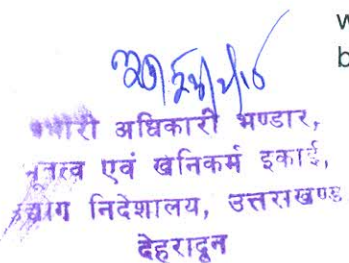 w
b
प्रभारी अधिकारी भण्डार,
भूतत्व एवं खनिकर्म इकाई,
उद्योग निदेशालय, उत्तराखण्ड
देहरादून